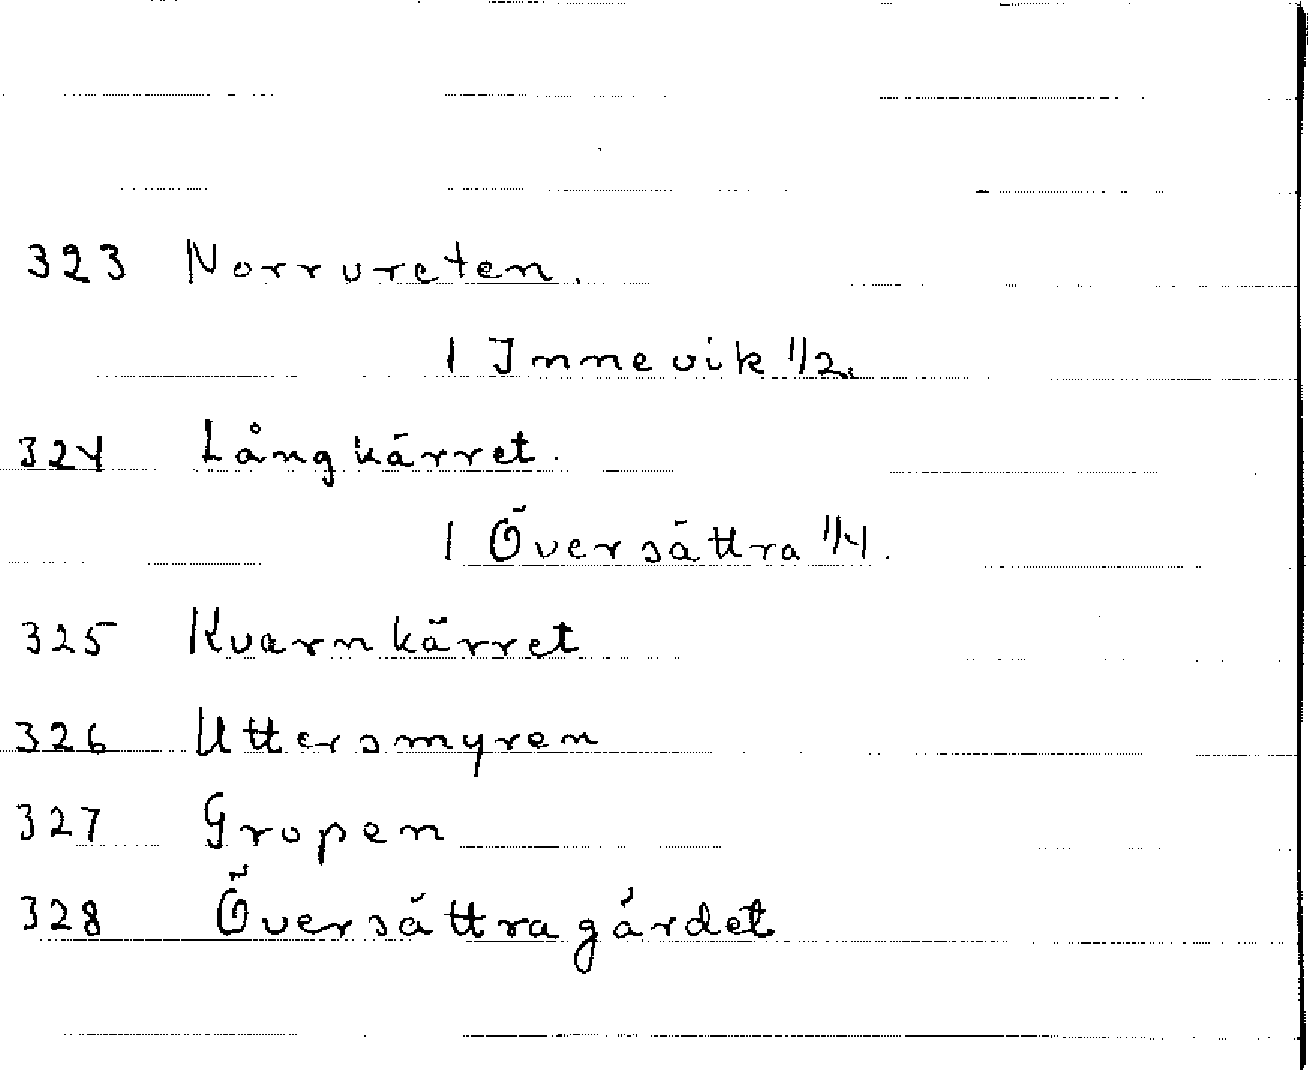 323 Norrvreten.
1 Innevik 1/2.
324 Långkärret.
1 Översättra 1/4.
325 Kvarnkärret
326 Uttersmyren
327 Gropen
328 Översättragärdet